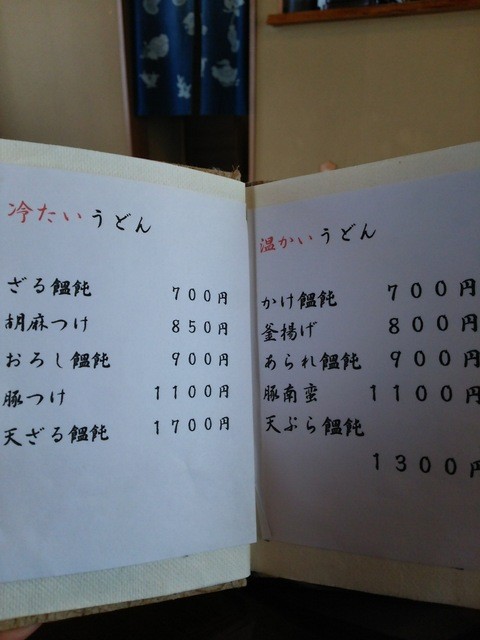 冷たいうどん
ざる饂飩 700円
胡麻つけ 850円
おろし饂飩 900円
豚つけ 1100円
天ざる饂飩 1700円
温かいうどん
かけ饂飩 700円
釜揚げ 800円
あられ饂飩 900円
豚南蛮 1100円
天ぷら饂飩
1300円